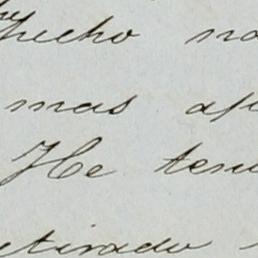 hecho no
mas
He ten
tirado